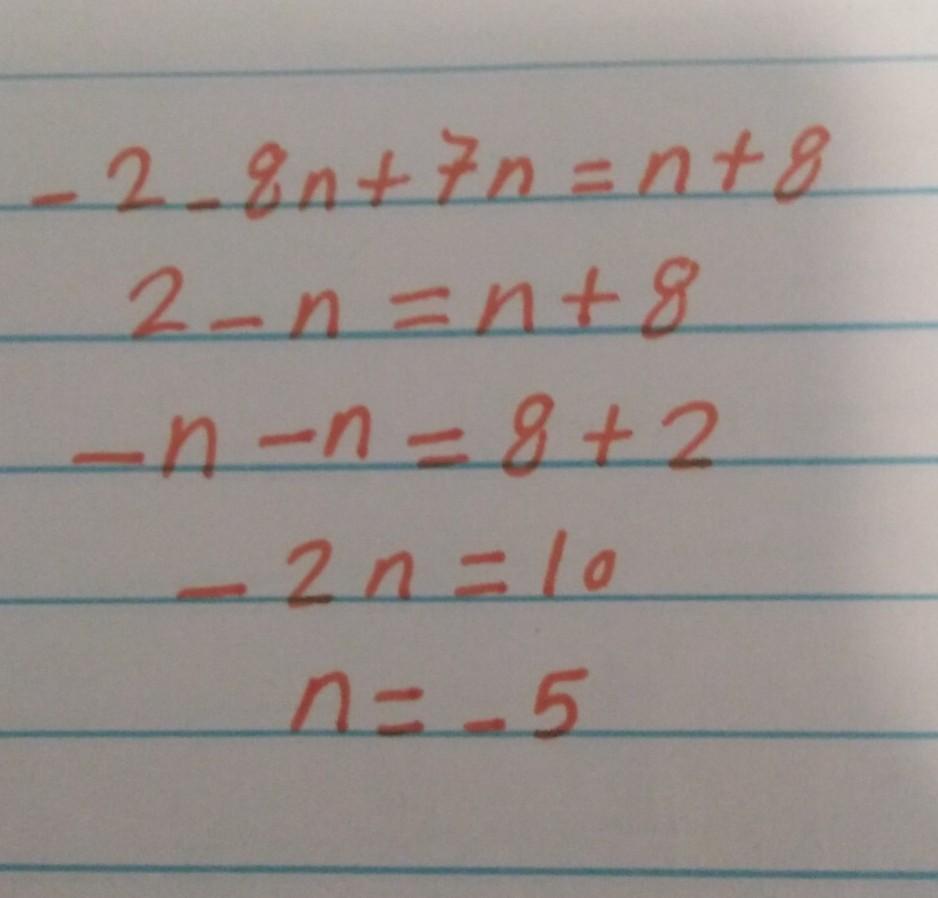 -2-8n+7n=n+8
2-n=n+8
-n-n=8+2
-2n=10
n=-5